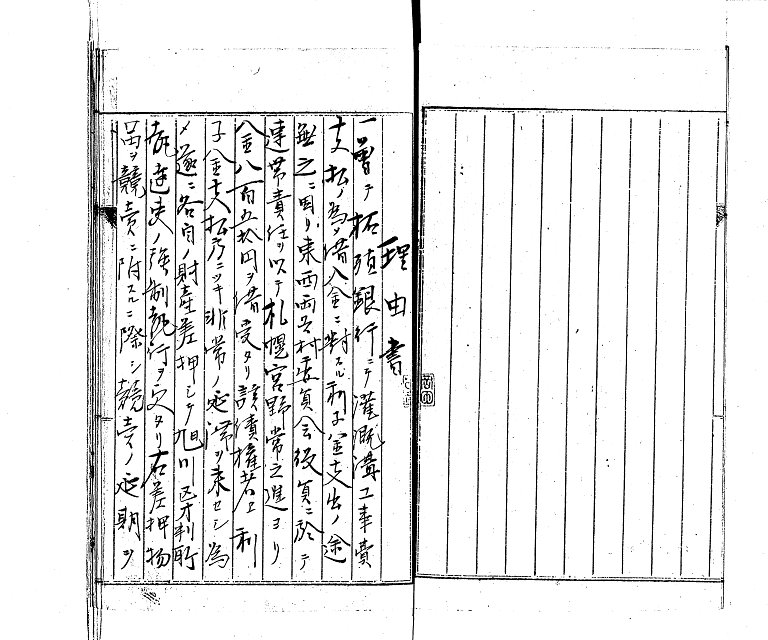 理由書
一曽テ拓殖銀行ニテ灌漑溝工事費
支払ノ為メ借入金ニ対スル利子金支出ノ途
無之ニ因リ東西両兵村委員会役員ニ於テ
連帯責任ヲ以テ札幌宮野常之進ヨリ
金八百五拾円ヲ借受タリ該債権者エ利
子金支払方ニツキ非常ノ延滞ヲ来セシ為
メ遂ニ各自ノ財産差押シテ旭川区才判所
執達吏ノ強制執行ヲ受タリ右差押物
品ヲ競売ニ附スルニ際シ競売ノ延期ヲ